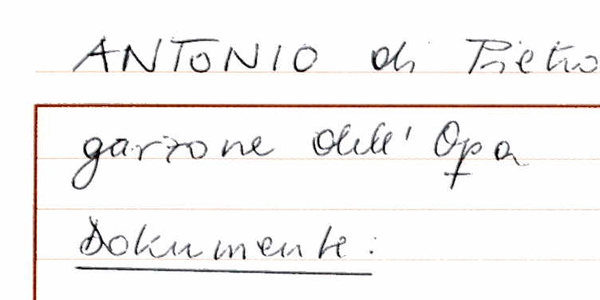 ANTONIO di Pietro
garzone dell' Opa
Dokumente: